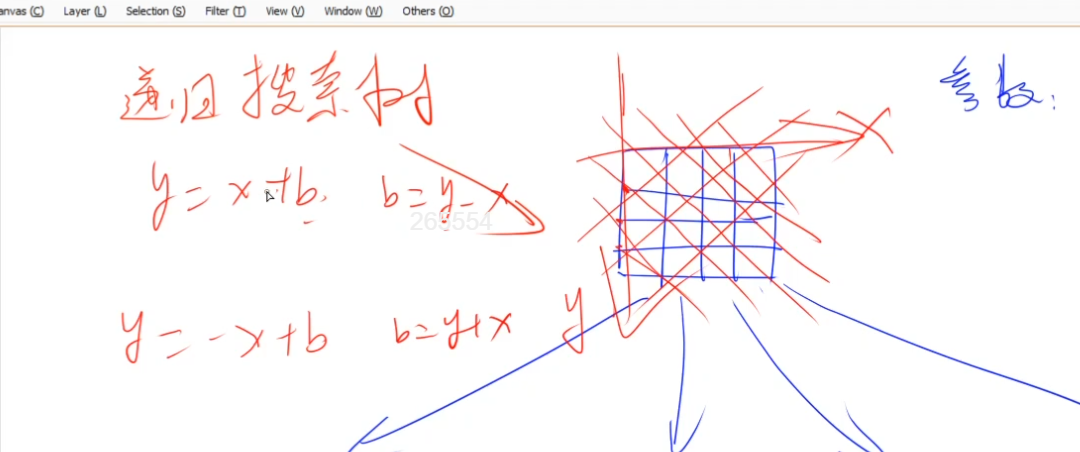 anvas (C) Layer (L) Selection (S) Filter (T) View (V) Window (W) Others (O)
递归搜索树
参数:
y = x + b, b = y - x
265554
y = -x + b b = y + x y
x